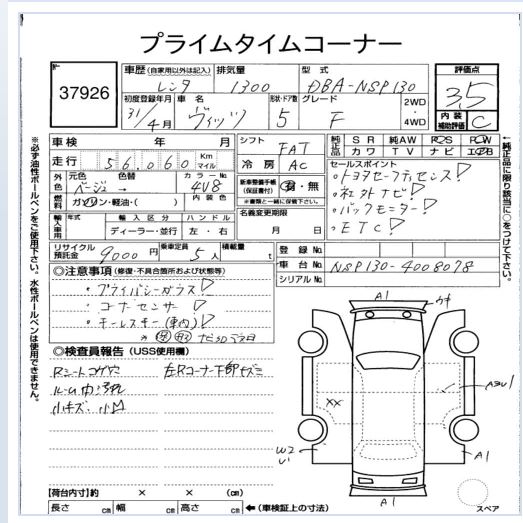 プライムタイムコーナー
37926
車歴(自家用以外は記入) 排気量 型式 評価点
レンタ 1300 DBA-NSP130 3.5
初度登録年月 車名 形状・ドア数 グレード 2WD 4WD
31/4月 ヴィッツ 5 F
内装補助評価 C
車検 年 月
シフト FAT
純正品 SR 純AW ROS POW
カワ TV ナビ エアB
走行 56,060 Km マイル
冷房 AC
外色 元色 色替 カラーNo.
ベージュ → 4V8
新車整備手帳(保証書付) 有・無
※書類と一緒に保管下さい。
セールスポイント
・トヨタセーフティセンス!
・社外ナビ!
・バックモニター!
・ETC!
燃料 ガソリン・軽油・( ) 内装色
名義変更期限
月 日
輸入車用 輸入区分 ハンドル
ディーラー・並行 左・右
リサイクル預託金 9000円 乗車定員 5人 積載量 t
登録No.
車台No. NSP130-4008078
シリアルNo.
◎注意事項(修復・不具合箇所および状態等)
・プライバシーガラス!
・コーナーセンサー!
・キーレスキー(車内)!
◎検査員報告(USS使用欄)
Rシートコゲ穴 左Rコーナー下部キズミ
ルーム内汚れ
小キズ、小凹
【荷台内寸】約 × × (cm)
長さ cm 幅 cm 高さ cm ←(車検証上の寸法)
※必ず油性ボールペンをご使用下さい。水性ボールペンは使用できません。
←純正品に限り該当に○をつけて下さい。
A1
A3
XX
W2
A1
A1
スペア